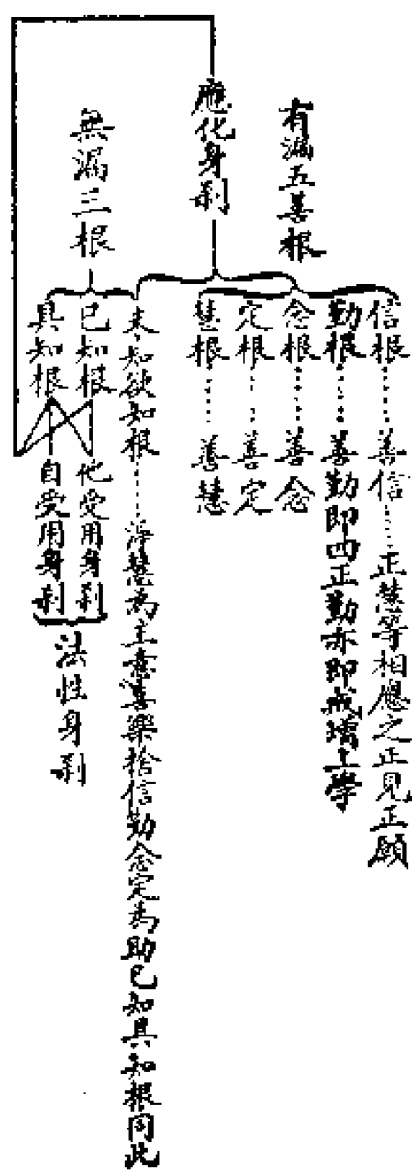 有漏五善根
信根……善信……正慧等相應之正見正願
勤根……善勤即四正勤亦即戒增上學
念根……善念
定根……善定
慧根……善慧
應化身刹
無漏三根
未知欲知根……淨慧為主意喜樂捨信勤念定為助已知具知根同此
已知根
具知根
他受用身刹
自受用身刹
法性身刹